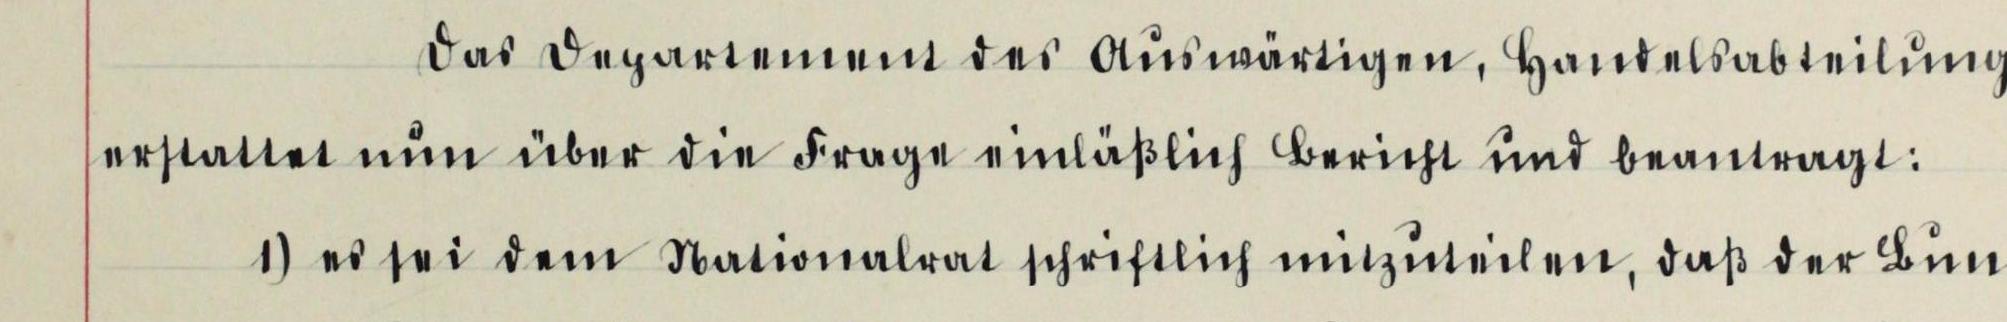 Das Departement des Auswärtigen, Handelsabteilung
erstattet nun über die Frage einläßlich Bericht und beantragt:
1) es sei dem Nationalrat schriftlich mitzuteilen, daß der Bun